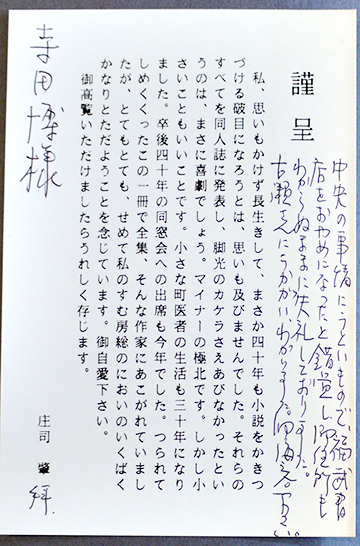 謹呈
中央の事情にうといもので、福武書
店をおやめになったと錯覚し御住所も
わからぬままに失礼しておりました。
古瀬さんにうかがい、わかりました。御海容下さい。
私、思いもかけず長生きして、まさか四十年も小説をかきつ
づける破目になろうとは、思いも及びませんでした。それらの
すべてを同人誌に発表し、脚光のカケラさえあびなかったとい
うのは、まさに喜劇でしょう。マイナーの極北です。しかし小
さいこともいいことです。小さな町医者の生活も三十年になり
ました。卒後四十年の同窓会への出席も今年でした。つられて
しめくくったこの一冊で全集、そんな作家にあこがれていまし
たが、とてもとても、せめて私のすむ房総のにおいのいくばく
かなりとただようことを念じています。御自愛下さい。
御高覧いただけましたらうれしく存じます。
庄司 肇 拝
寺田博様